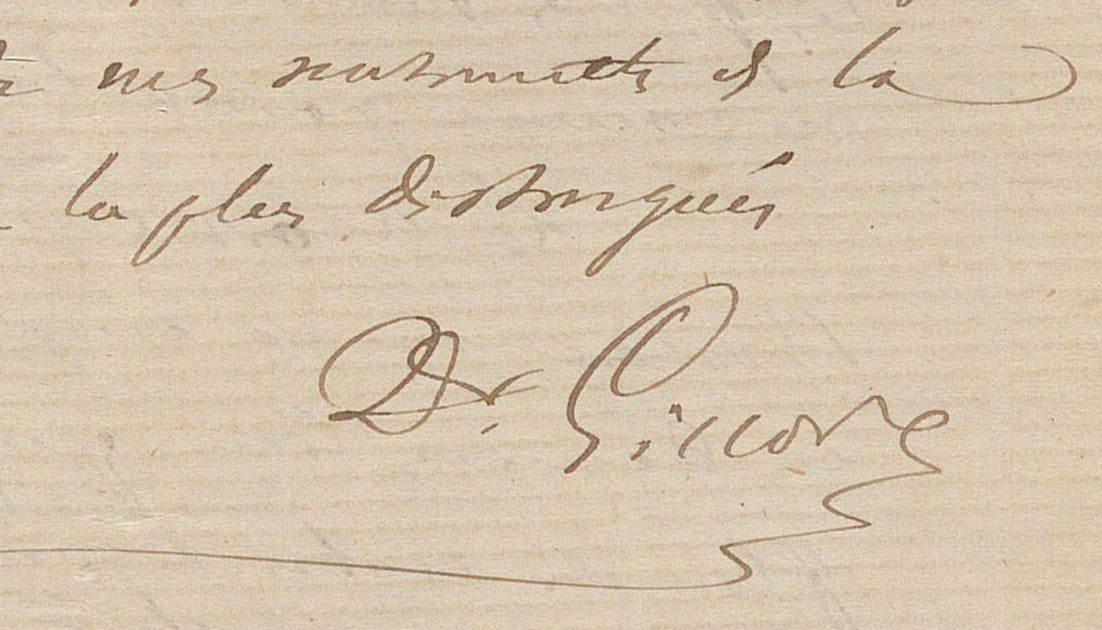 mes sentiments et de la
la plus distinguée
Dr.